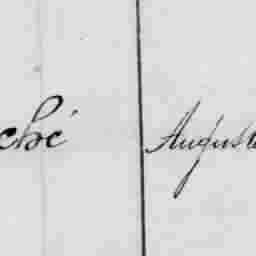 ché Auguste